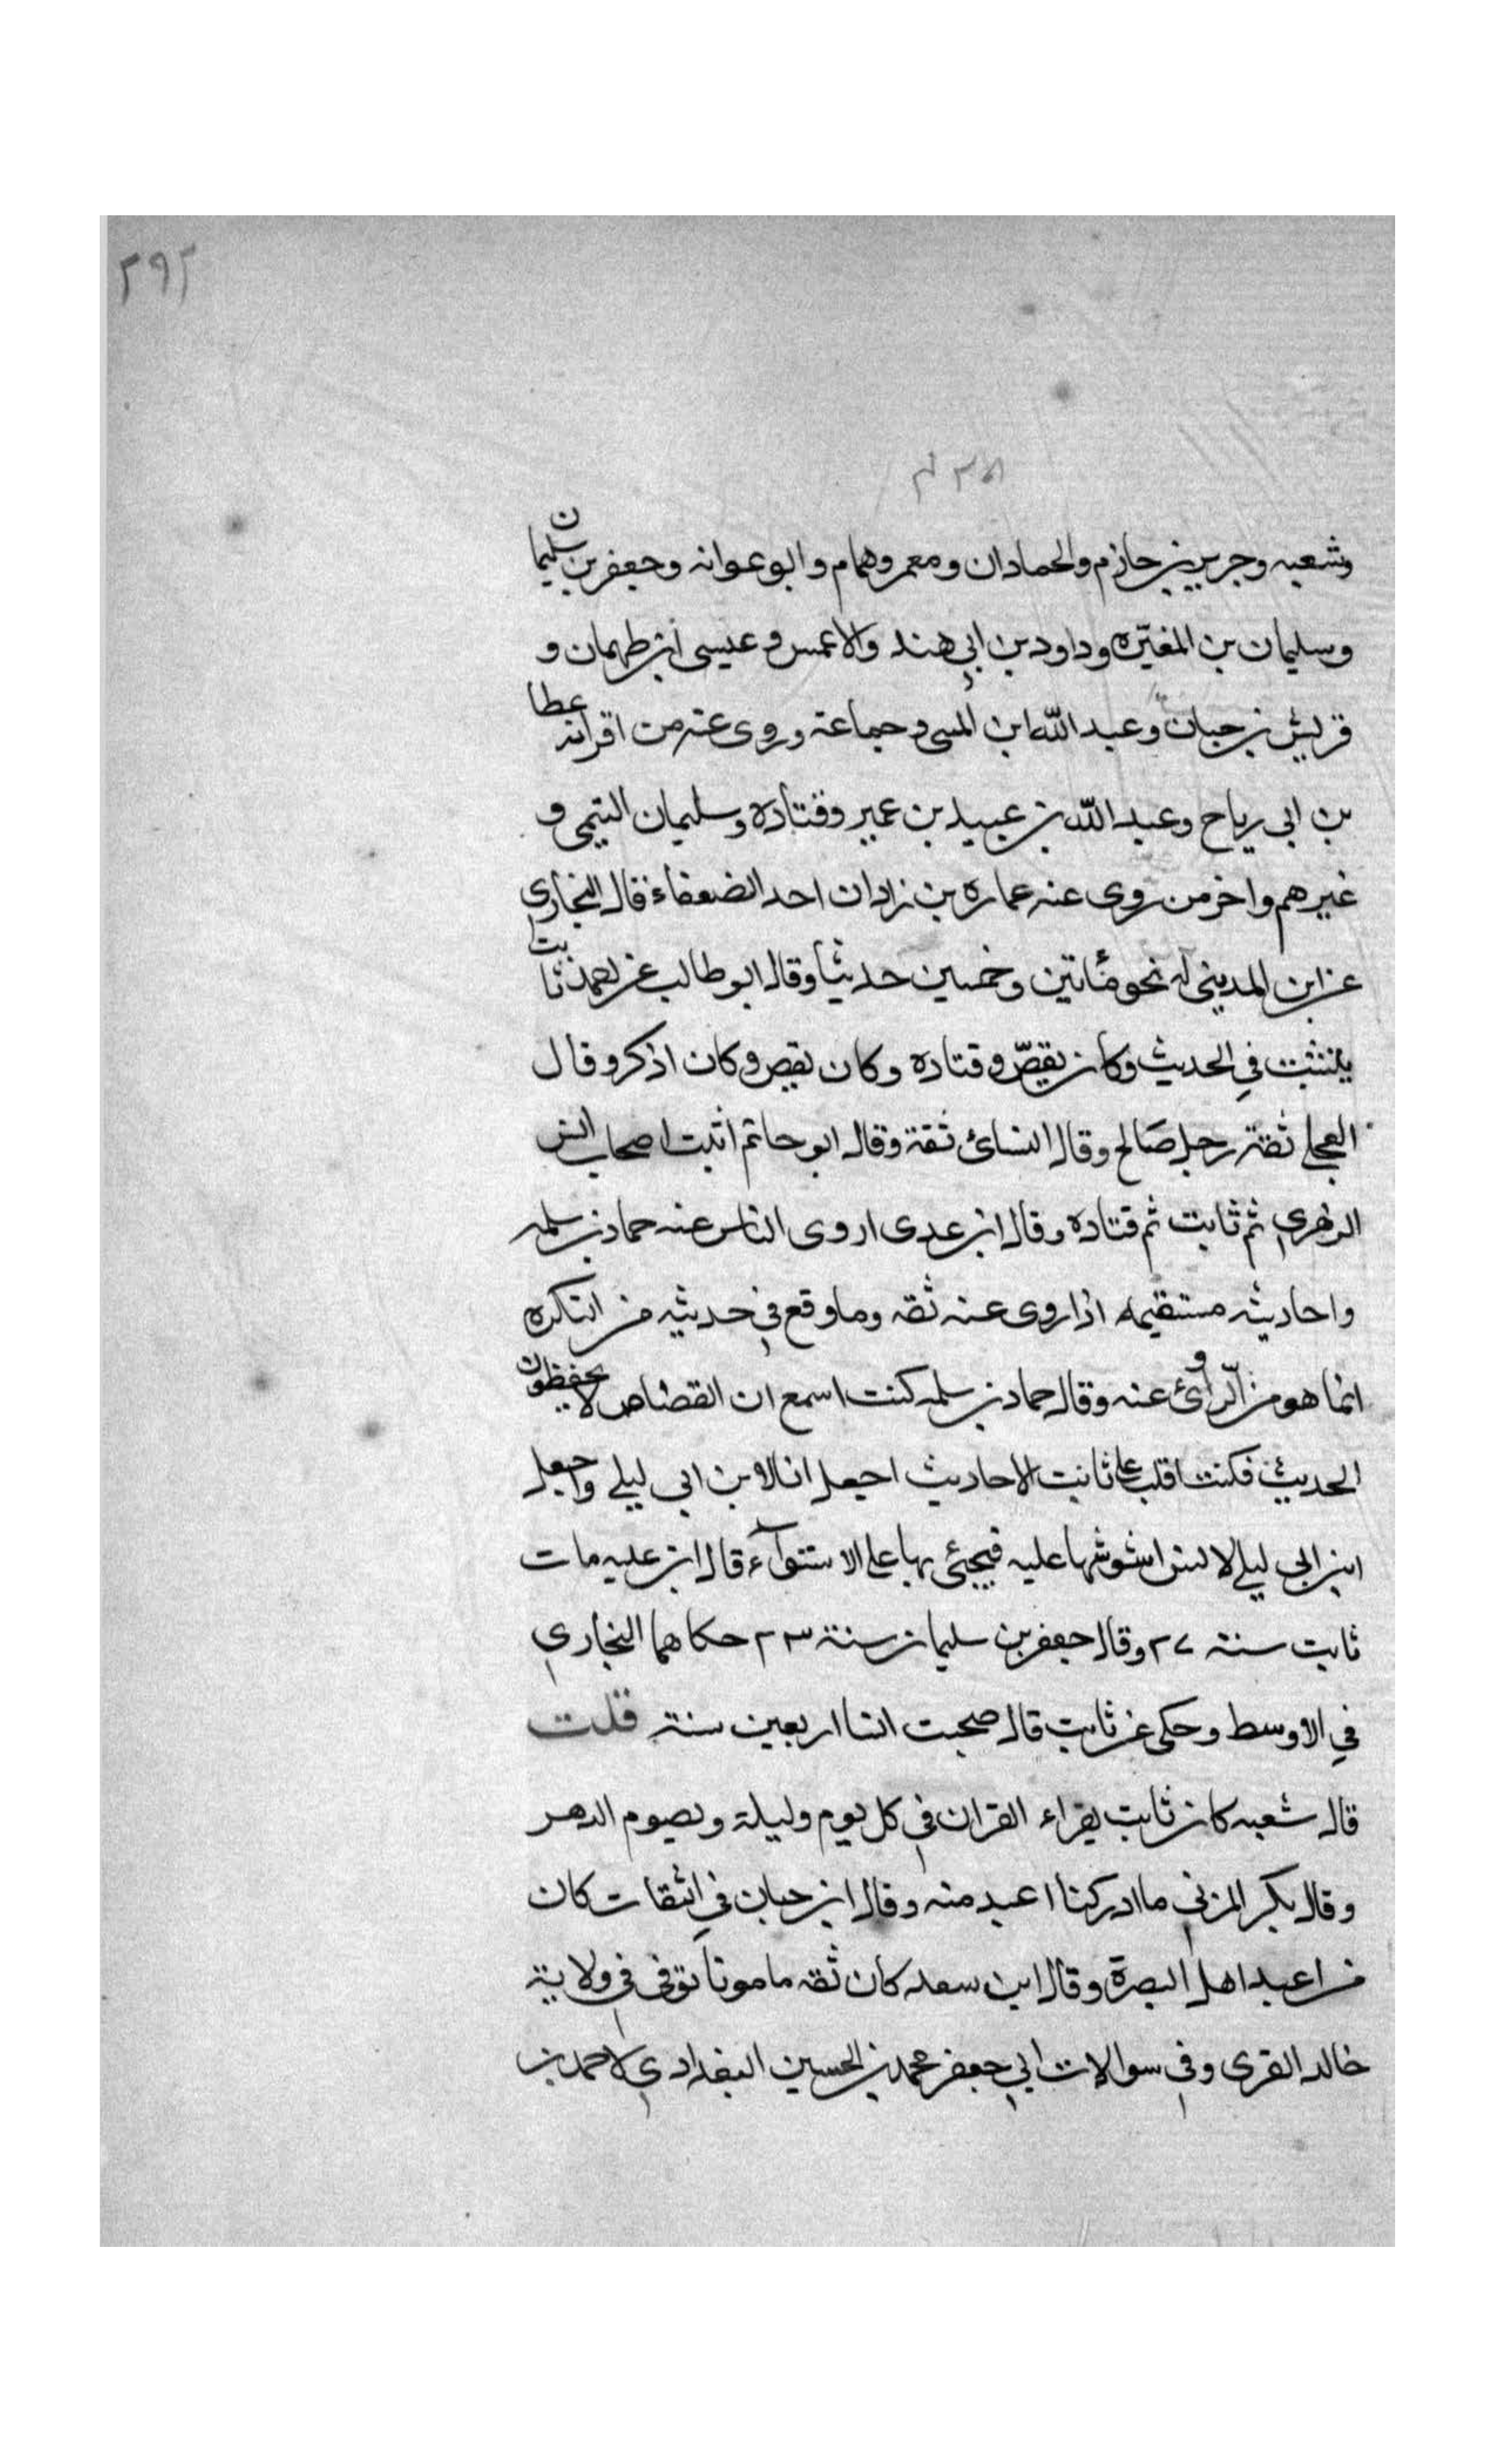 ٢٩٢
وشعبه وجرير بن حازم والحمادان ومعمر وهمام وابو عوانه وجعفر بن سليمان
وسليمان بن المغيّره وداود بن ابي هند والاعمس وعيسى ابن طهمان و
قريش بن حبان وعبد الله ابن المسى وجماعة وروى عنه من اقرانه عطا
بن ابى رياح وعبد الله بن عبيد بن عمير وقتادة وسليمان التيمى و
غيرهم واخر من روى عنه عماره بن زادان احد الضعفاء قال البخارى
عن ابن المدينى له نحو مئاتين وخمسين حديثا وقال ابو طالب عن احمد ثابت
يتثبت في الحديث وكان يقصّ وقتاده وكان يقص وكان اذكر وقال
العجلى ثقة رجل صَالح وقال النسائ ثقة وقال ابو حاتم اثبت اصحاب انس
الزهري ثم ثابت ثم قتادة وقال ابن عدى اروى الناس عنه حماد بن سلمه
واحاديثه مستقيمه اذا روى عنه ثقه وما وقع في حديثه من النكره
انما هو من الّراوئ عنه وقال حماد بن سلمه كنت اسمع ان القصاص لا يحفظون
الحديث فكنت اقلب على ثابت الاحاديث اجعل انس لابن ابى ليلى واجعل
ابن ابى ليلى لانس اشوشها عليه فيجئى بها على الاستوآء قال ابن عليه مات
ثابت سنة ٢٧ وقال جعفر بن سليمان سنة ٢٣ حكاهما البخاري
في الاوسط وحكى عن ثابت قال صحبت انسا اربعين سنة قلت
قال شعبه كان ثابت يقراء القران في كل يوم وليلة ويصوم الدهر
وقال بكر المزني ما ادركنا اعبد منه وقال ابن حبان في الثقات كان
من اعبد اهل البصرة وقال ابن سعد كان ثقه مامونا توفى فى ولاية
خالد القرى وفى سوالات ابي جعفر محمد بن الحسين البغدادي لاحمد بن